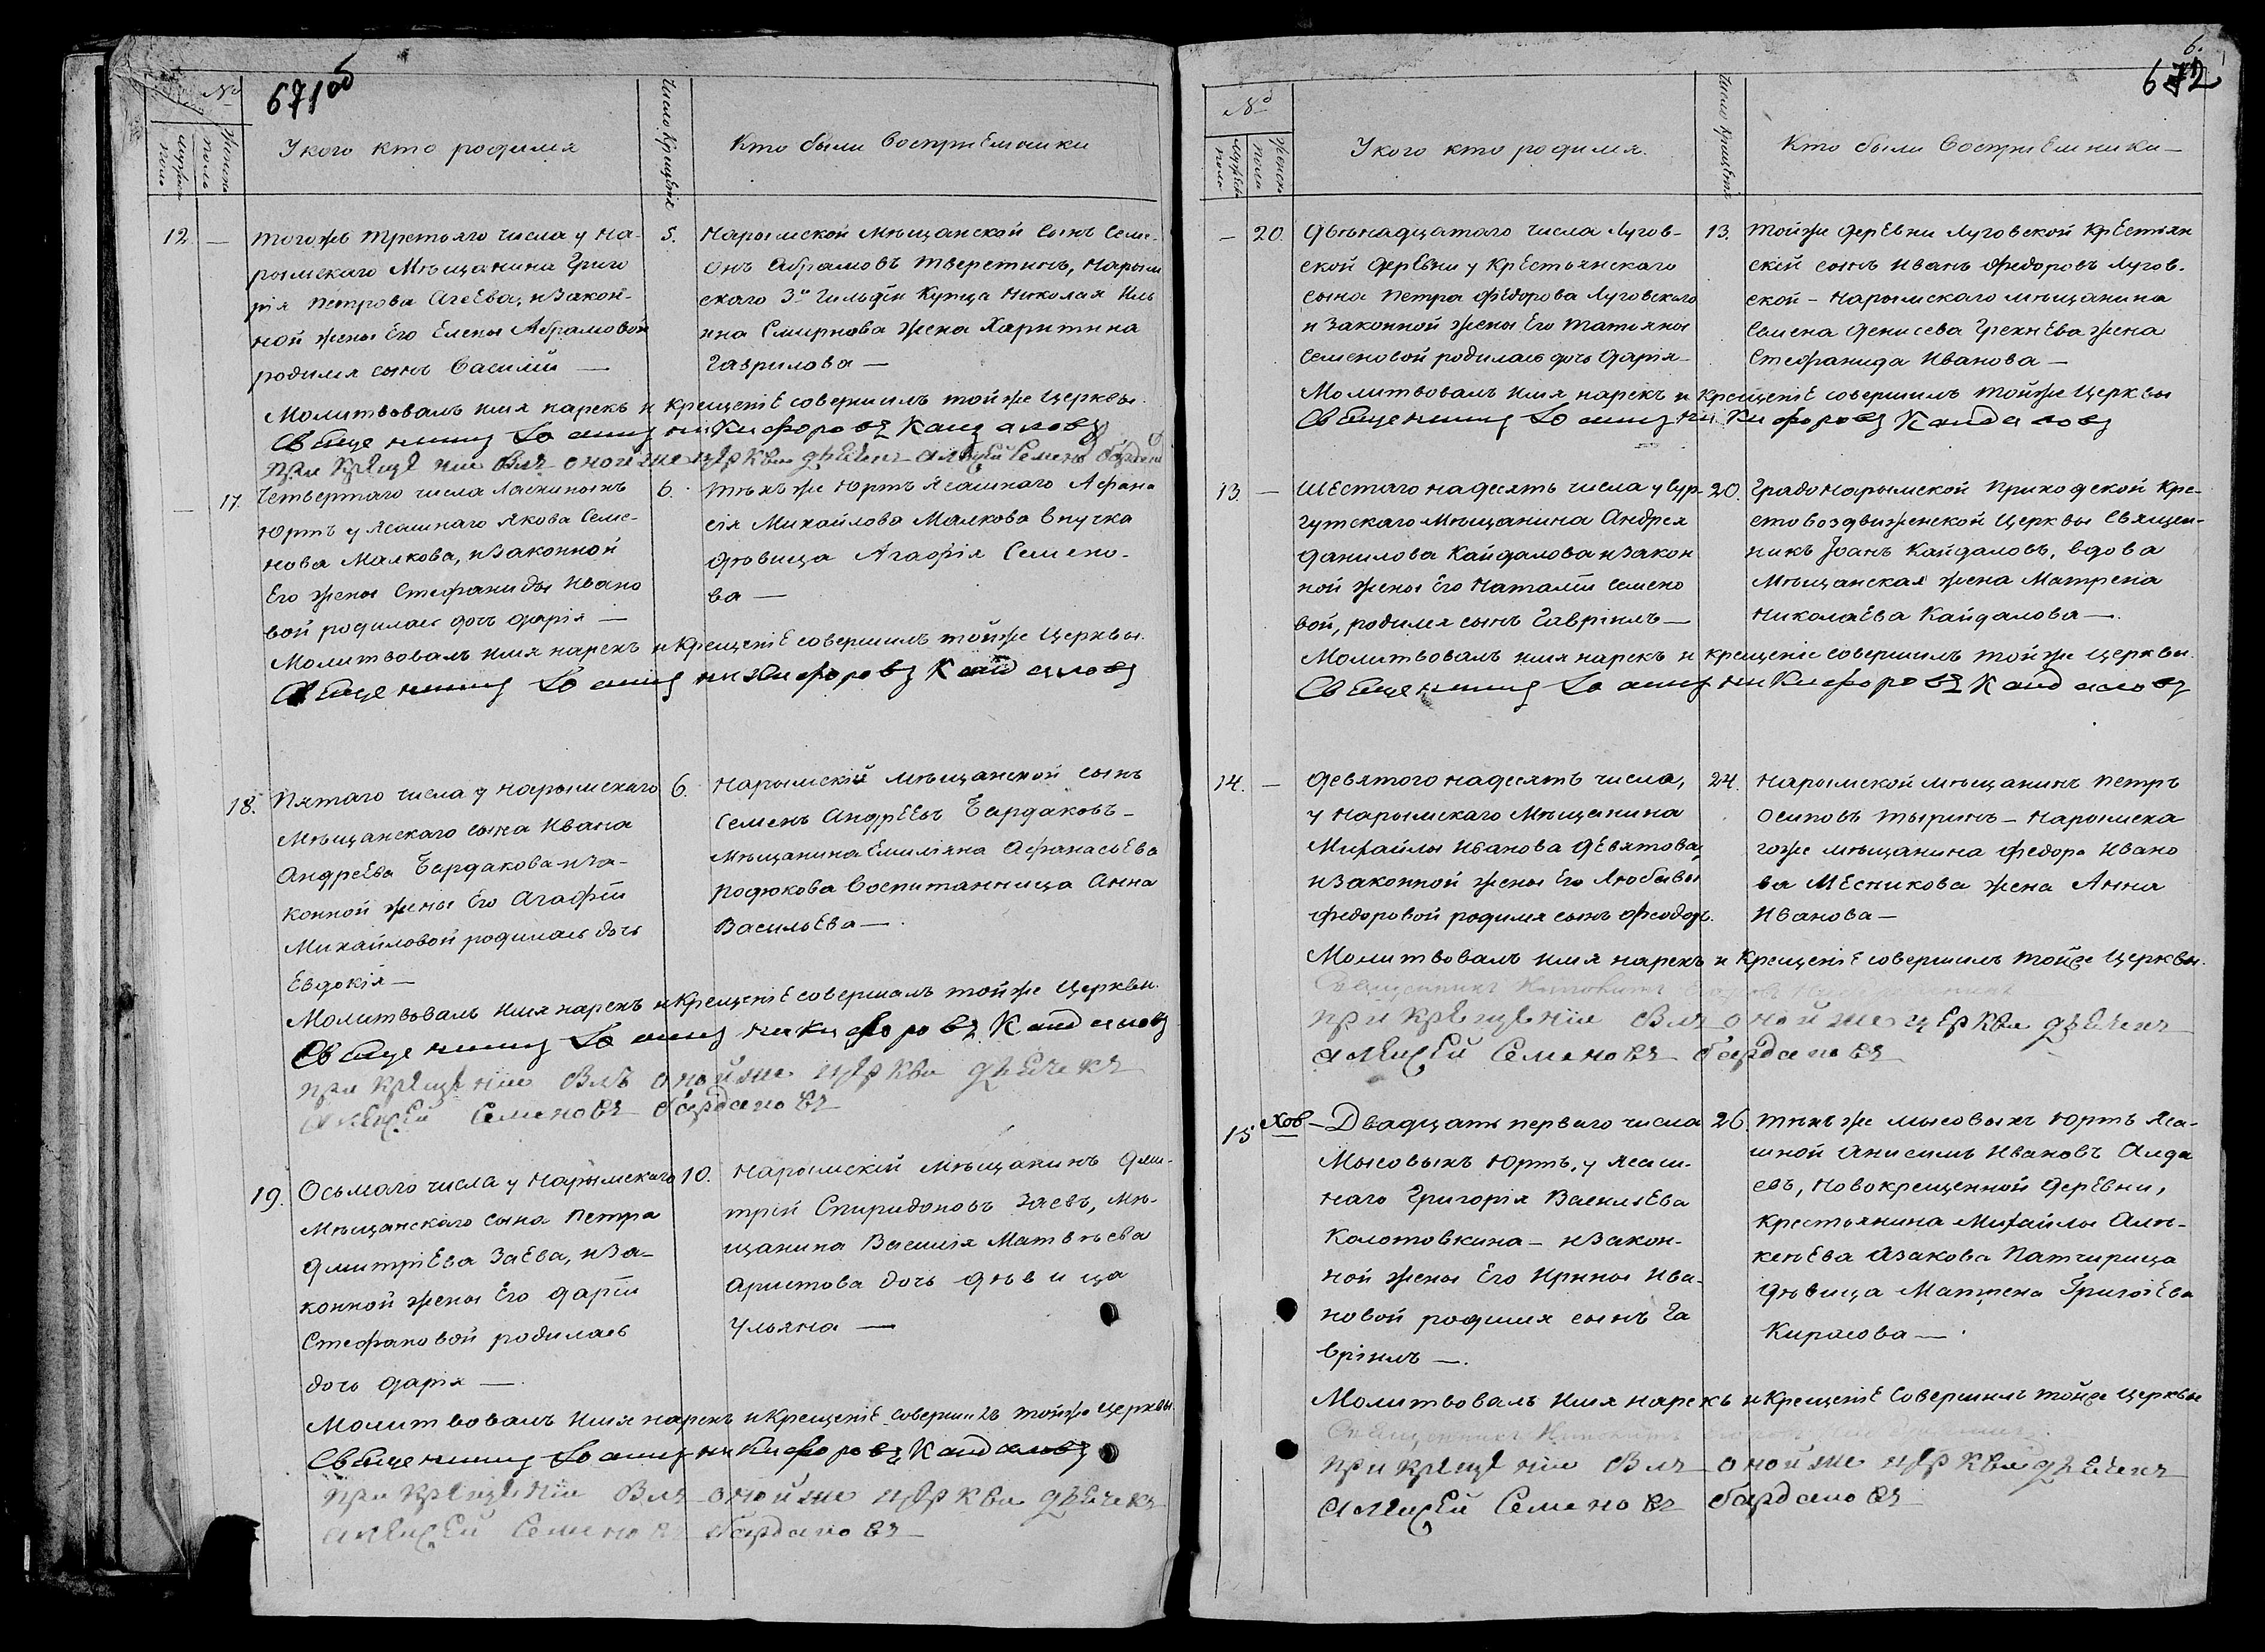 671об
№
Мужеска пола
Женска пола
У кого кто родился
Число Крещенія
Кто были Воспріемники
12. —
Тогожъ третьяго числа у На-
рымскаго Мѣщанина Григо
рія Петрова Агеева, и закон-
ной жены Его Елены Абрамовой
родился сынъ Василій —
5.
Нарымской Мѣщанской сынъ Семі-
онъ Абрамовъ Тверетинъ, Нарым
скаго 3й Гильдіи Купца Николая Иль
ина Смирнова жена Харитина
Гаврилова —
Молитвовалъ имя нарекъ и Крещеніе совершилъ тойже Церквы.
Священникъ Іоаннъ Никифоровъ Кайдаловъ
При крещеніи былъ онойже церкви дьячекъ Алексей Семеновъ
— 17.
Четвертаго числа Ласкиныхъ
Юртъ у Ясашнаго Якова Семе-
нова Малкова, и законной
Его жены Стефаниды Ивано
вой родилась дочь Дарія —
6.
Тѣхъже Юртъ Ясашнаго Афана
сія Михайлова Малкова внучка
дѣвица Агафія Семено-
ва —
Молитвовалъ имя нарекъ и Крещеніе совершилъ тойже Церквы.
Священникъ Іоаннъ Никифоровъ Кайдаловъ
18.
Пятаго числа у Нарымскаго
Мѣщанскаго сына Ивана
Андреева Бардакова и за-
конной жены Его Агафіи
Михайловой родилась дочь
Евдокія —
6.
Нарымскій мѣщанской сынъ
Семенъ Андреевъ Бардаковъ —
Мѣщанина Емиліяна Афанасьева
Родюкова Воспитанница Анна
Васильева —
Молитвовалъ имя нарекъ и Крещеніе совершалъ тойже Церкви.
Священникъ Іоаннъ Никифоровъ Кайдаловъ
При крещеніи былъ онойже церкви дьячекъ
Алексей Семеновъ Бардаковъ
19.
Осьмаго числа у Нарымскаго
Мѣщанскаго сына Петра
Дмитріева Заева, и за-
конной жены Его Даріи
Стефановой родилась
дочь Дарія —
10.
Нарымскій Мѣщанинъ Дми-
трій Спиридоновъ Заевъ, Мѣ-
щанина Василія Матвѣева
Аристова дочь дѣвица
Ульяна —
Молитвовалъ имя нарекъ и Крещеніе совершилъ тойже Церквы.
Священникъ Іоаннъ Никифоровъ Кайдаловъ
При крещеніи былъ онойже церкви дьячекъ
Алексей Семеновъ Бардаковъ
6.
672
№
Мужеска пола
Женска пола
У кого кто родился.
Число Крещенія
Кто были Воспріемники —
— 20.
Двѣнадцатаго числа Лугов-
ской деревни у Крестьянскаго
сына Петра Федорова Луговскаго
и законной жены Его Татьяны
Семеновой родилась дочь Дарія —
13.
Тойже деревни Луговской Крестьян
скій сынъ Иванъ Федоровъ Лугов-
ской — Нарымскаго мѣщанина
Семена Денисева Грехнева жена
Стефанида Иванова —
Молитвовалъ имя нарекъ и Крещеніе совершилъ тойже Церквы
Священникъ Іоаннъ Никифоровъ Кайдаловъ
13. —
Шестаго надесять числа у Сур-
гутскаго Мѣщанина Андрея
Данилова Кайдалова и закон
ной жены Его Наталіи Семено
вой, родился сынъ Гавріилъ —
20.
Градо Нарымской Приходской Кре-
стовоздвиженской Церквы Священ-
никъ Іоанъ Кайдаловъ, вдова
Мѣщанская жена Матрена
Николаева Кайдалова —
Молитвовалъ имя нарекъ и крещеніе совершилъ тойже церкви.
Священникъ Іоаннъ Никифоровъ Кайдаловъ
14. —
Девятого надесять числа,
у Нарымскаго Мѣщанина
Михайлы Иванова Девятова,
и законной жены Его Любовы
Федоровой родился сынъ Феодоръ.
24.
Нарымской мѣщанинъ Петръ
Осиповъ Тыринъ — Нарымска
гоже мѣщанина Федора Ивано
ва Месникова жена Анна
Иванова —
Молитвовалъ имя нарекъ и Крещеніе совершилъ тойже Церквы.
Священникъ
При крещеніи былъ онойже церкви дьячекъ
Алексей Семеновъ Бардаковъ
15 —
Двадцать перваго числа
Мысовыхъ Юртъ, у Ясаш-
наго Григорія Васильева
Колотовкина — и закон-
ной жены Его Ирины Ива-
новой родился сынъ Га
вріилъ —.
26.
Тѣхъже мысовыхъ Юртъ Яса-
шной Анисимъ Ивановъ Аида
евъ, Новокрещенной деревни,
крестьянина Михайлы Але-
кеева Азакова Патчирица
дѣвица Матрена Григорьева
Молитвовалъ имя нарекъ и Крещеніе совершилъ тойже Церквы
Священникъ
При крещеніи былъ онойже церкви дьячекъ
Алексей Семеновъ Бардаковъ